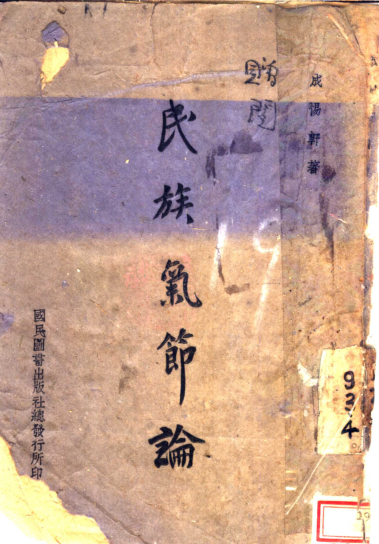 成惕軒著
贈閱
民族氣節論
國民圖書出版社總發行所印
934